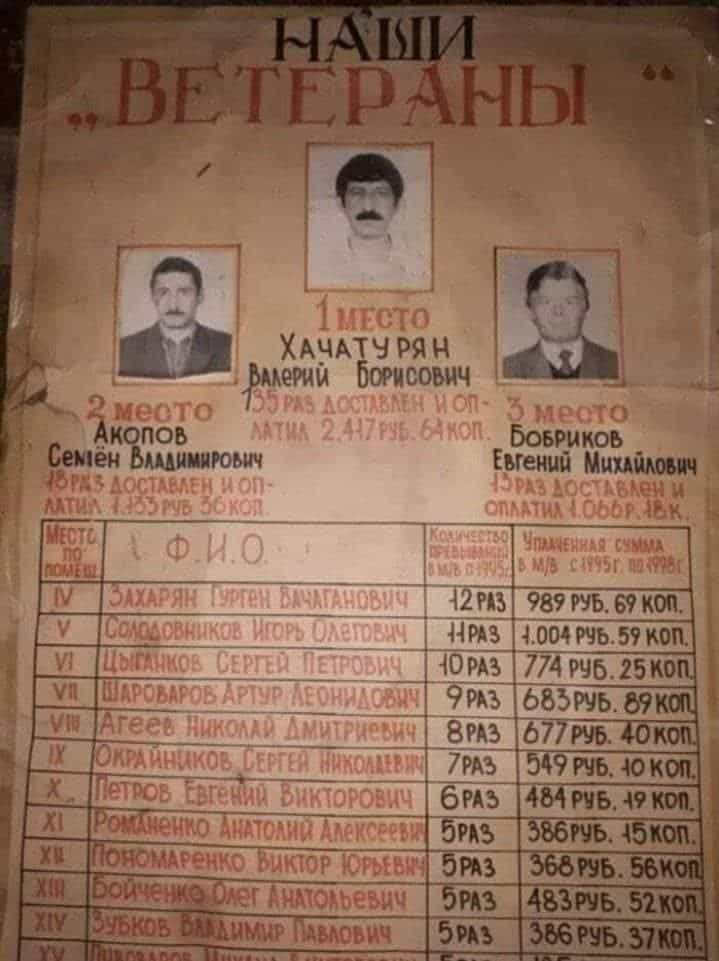 НАШИ
„ВЕТЕРАНЫ“
1 место
Хачатурян
Валерий Борисович
135 раз доставлен и оп-
латил 2.417 руб. 64 коп.
2 место
Акопов
Семён Владимирович
18 раз доставлен и оп-
латил 1.133 руб 36 коп.
3 место
Бобриков
Евгений Михайлович
13 раз доставлен и
оплатил 1.066 р. 18 к.
Место по помещ. Ф.И.О. Количество в м/в с 1995г. Уплаченная сумма в м/в с 1995г. по 1998г.
IV Захарян Гурген Вачаганович 12 раз 989 руб. 69 коп.
V Солодовников Игорь Олегович 11 раз 1.004 руб. 59 коп.
VI Цыганков Сергей Петрович 10 раз 774 руб. 25 коп.
VII Шароваров Артур Леонидович 9 раз 683 руб. 89 коп.
VIII Агеев Николай Дмитриевич 8 раз 677 руб. 40 коп.
IX Окрайников Сергей Николаевич 7 раз 549 руб. 10 коп.
X Петров Евгений Викторович 6 раз 484 руб. 19 коп.
XI Романенко Анатолий Алексеевич 5 раз 386 руб. 15 коп.
XII Пономаренко Виктор Юрьевич 5 раз 368 руб. 56 коп
XIII Бойченко Олег Анатольевич 5 раз 483 руб. 52 коп.
XIV Зубков Владимир Павлович 5 раз 386 руб. 37 коп.
XV